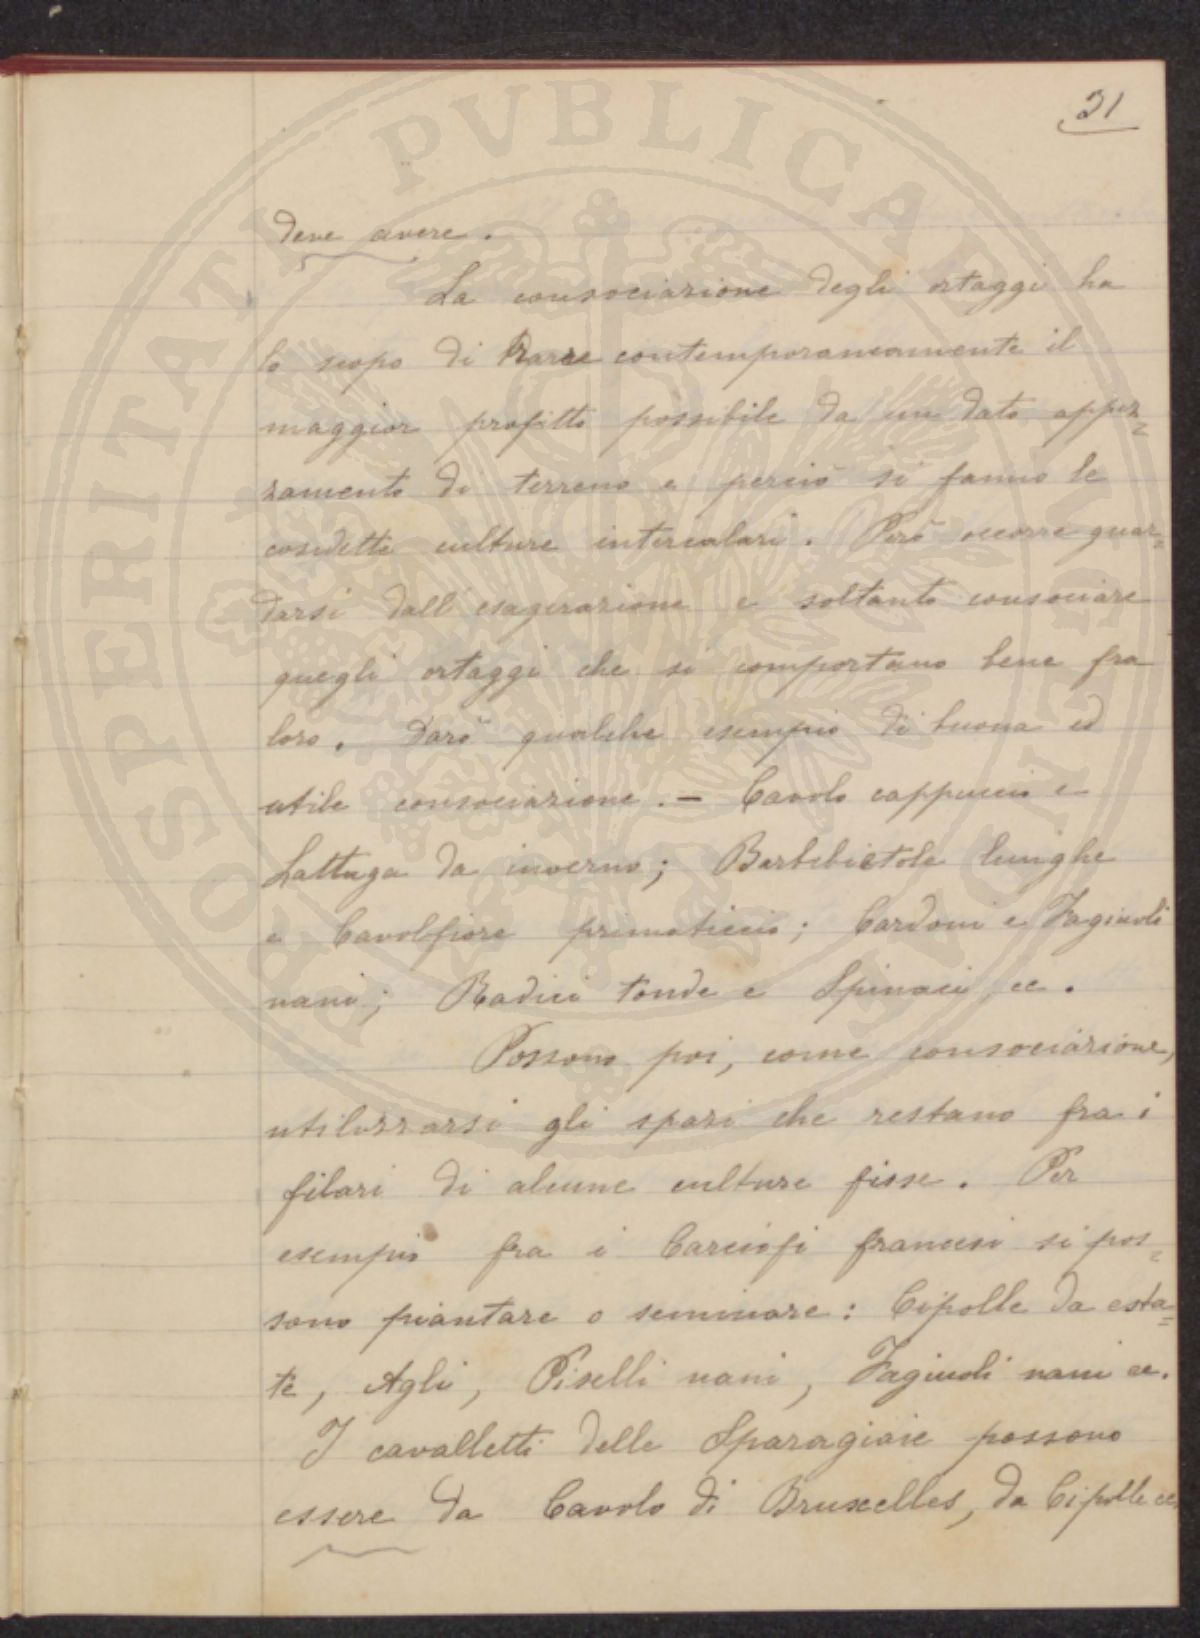 31
deve avere.
La consociazione degli ortaggi ha
lo scopo di trarre contemporaneamente il
maggior profitto possibile da un dato appez=
zamento di terreno e perciò si fanno le
cosidette culture intercalari. Però occorre guar=
darsi dall'esagerazione e soltanto consociare
quegli ortaggi che si comportano bene fra
loro. Darò qualche esempio di buona ed
utile consociazione. - Cavolo cappuccio e
Lattuga da inverno; Barbebietole lunghe
e Cavolfiore primaticcio; Cardoni e Fagiuoli
nani; Radici tonde e Spinaci ec.
Possono poi, come consociazione,
utilizzarsi gli spazi che restano fra i
filari di alcune culture fisse. Per
esempio fra i Carciofi francesi si pos=
sono piantare o seminare: Cipolle da esta=
te, Agli, Piselli nani, Fagiuoli nani ec.
I cavalletti delle Sparagiaie possono
essere da Cavolo di Bruxelles, da Cipolle ec.
PVBLICAE
PROSPERITATI